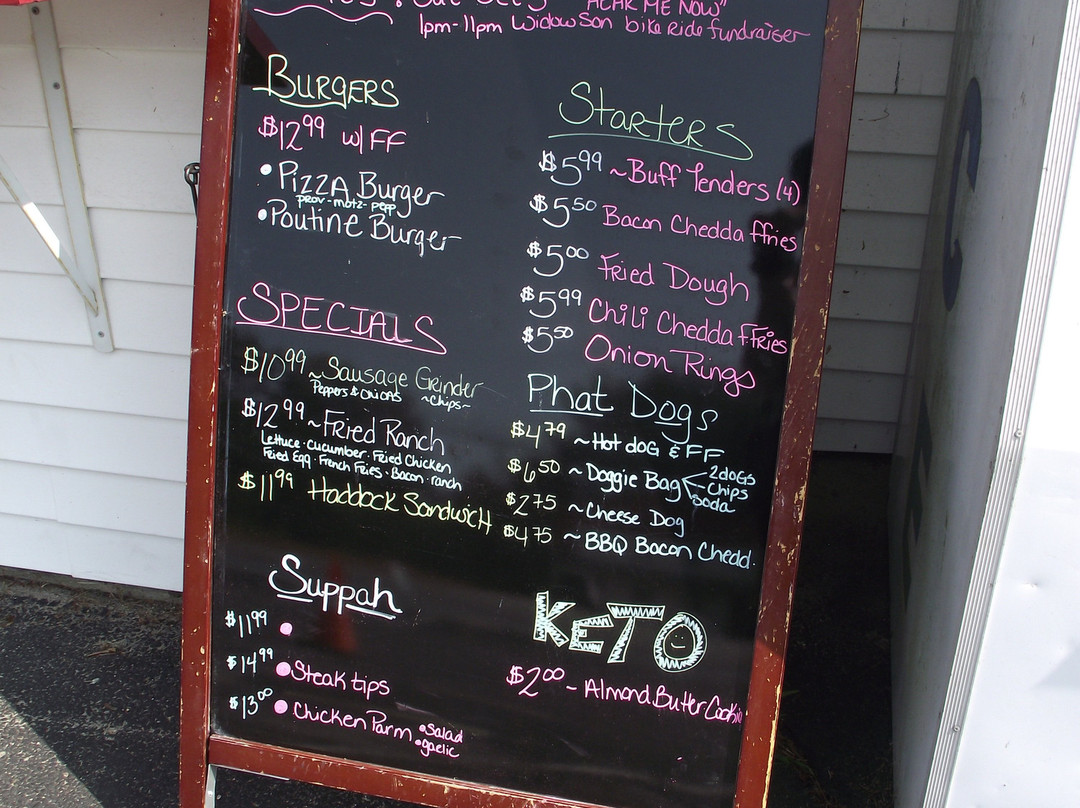 "HEAR ME NOW"
1pm-11pm Widowson bike ride fundraiser
BURGERS
$12.99 w/ FF
• PIZZA Burger
prov-motz-pepp
• Poutine Burger
SPECIALS
$10.99 ~ Sausage Grinder
Peppers & Onions ~Chips~
$12.99 ~ Fried Ranch
Lettuce · Cucumber · Fried Chicken
Fried Egg · French Fries · Bacon · ranch
$11.99 Haddock Sandwich
Suppah
$11.99 •
$14.99 • Steak tips
$13.00 • Chicken Parm • Salad
• gaelic
Starters
$5.99 ~ Buff Tenders (4)
$5.50 Bacon Chedda ffries
$5.00 Fried Dough
$5.99 Chili Chedda F.Fries
$5.50 Onion Rings
Phat Dogs
$4.79 ~ Hot dog & FF
$6.50 ~ Doggie Bag 2dogs
Chips
soda
$2.75 ~ Cheese Dog
$4.75 ~ BBQ Bacon Chedd.
KETO
$2.00 - Almond Butter Cookie